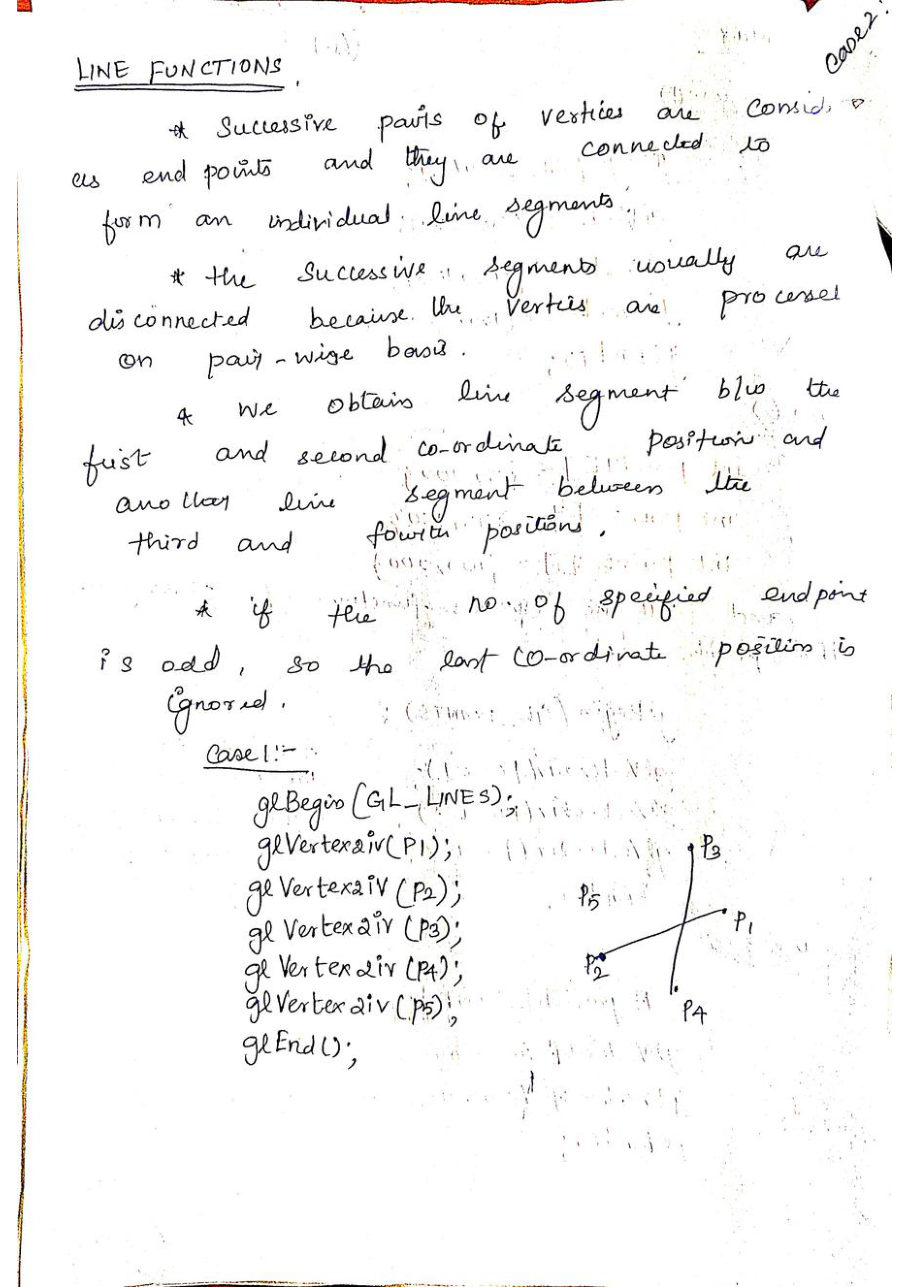 Case 2:
LINE FUNCTIONS
* Successive pairs of vertices are consid.
as end points and they are connected to
form an individual line segments.
* the Successive segments usually are
disconnected because the verties are processel
on pair-wise basis.
* we obtain line segment b/w the
first and second co-ordinate position and
another line segment between the
third and fourth positions.
* if the no. of specified endpoint
is odd, so the last co-ordinate position is
ignored.
Case 1:-
glBegin (GL_LINES);
glVertex2iv(P1);
glVertex2iv (P2);
glVertex2iv (P3);
glVertex2iv (P4);
glVertex2iv (P5);
glEnd();
P3
P5
P1
P2
P4